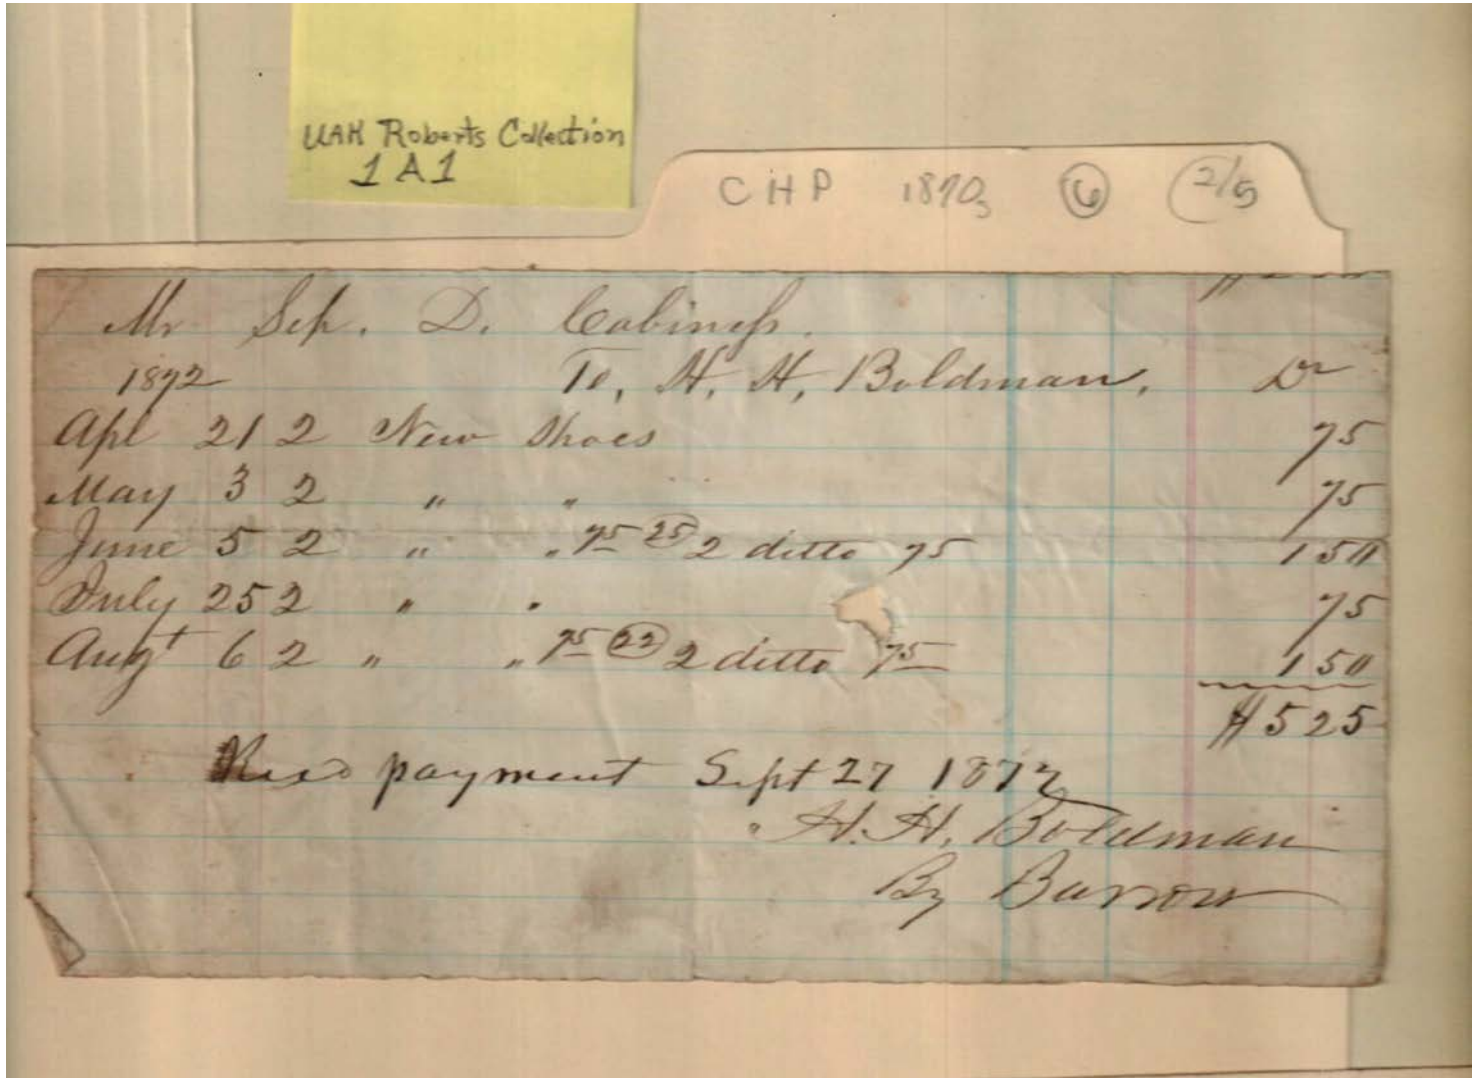 UAH Roberts Collection
1A1
CHP 1870s 6 2/5
Mr Sep. D. Cabiness.
1872 To, H. H, Boldman, Dr
Apl 21 2 New Shoes 75
May 3 2 " " 75
June 5 2 " " 75 25 2 ditto 75 150
July 25 2 " " 75
Augt 6 2 " " 75 22 2 ditto 75 150
$525
Recd payment Sept 27 1872
H. H. Boldman
By Barrow